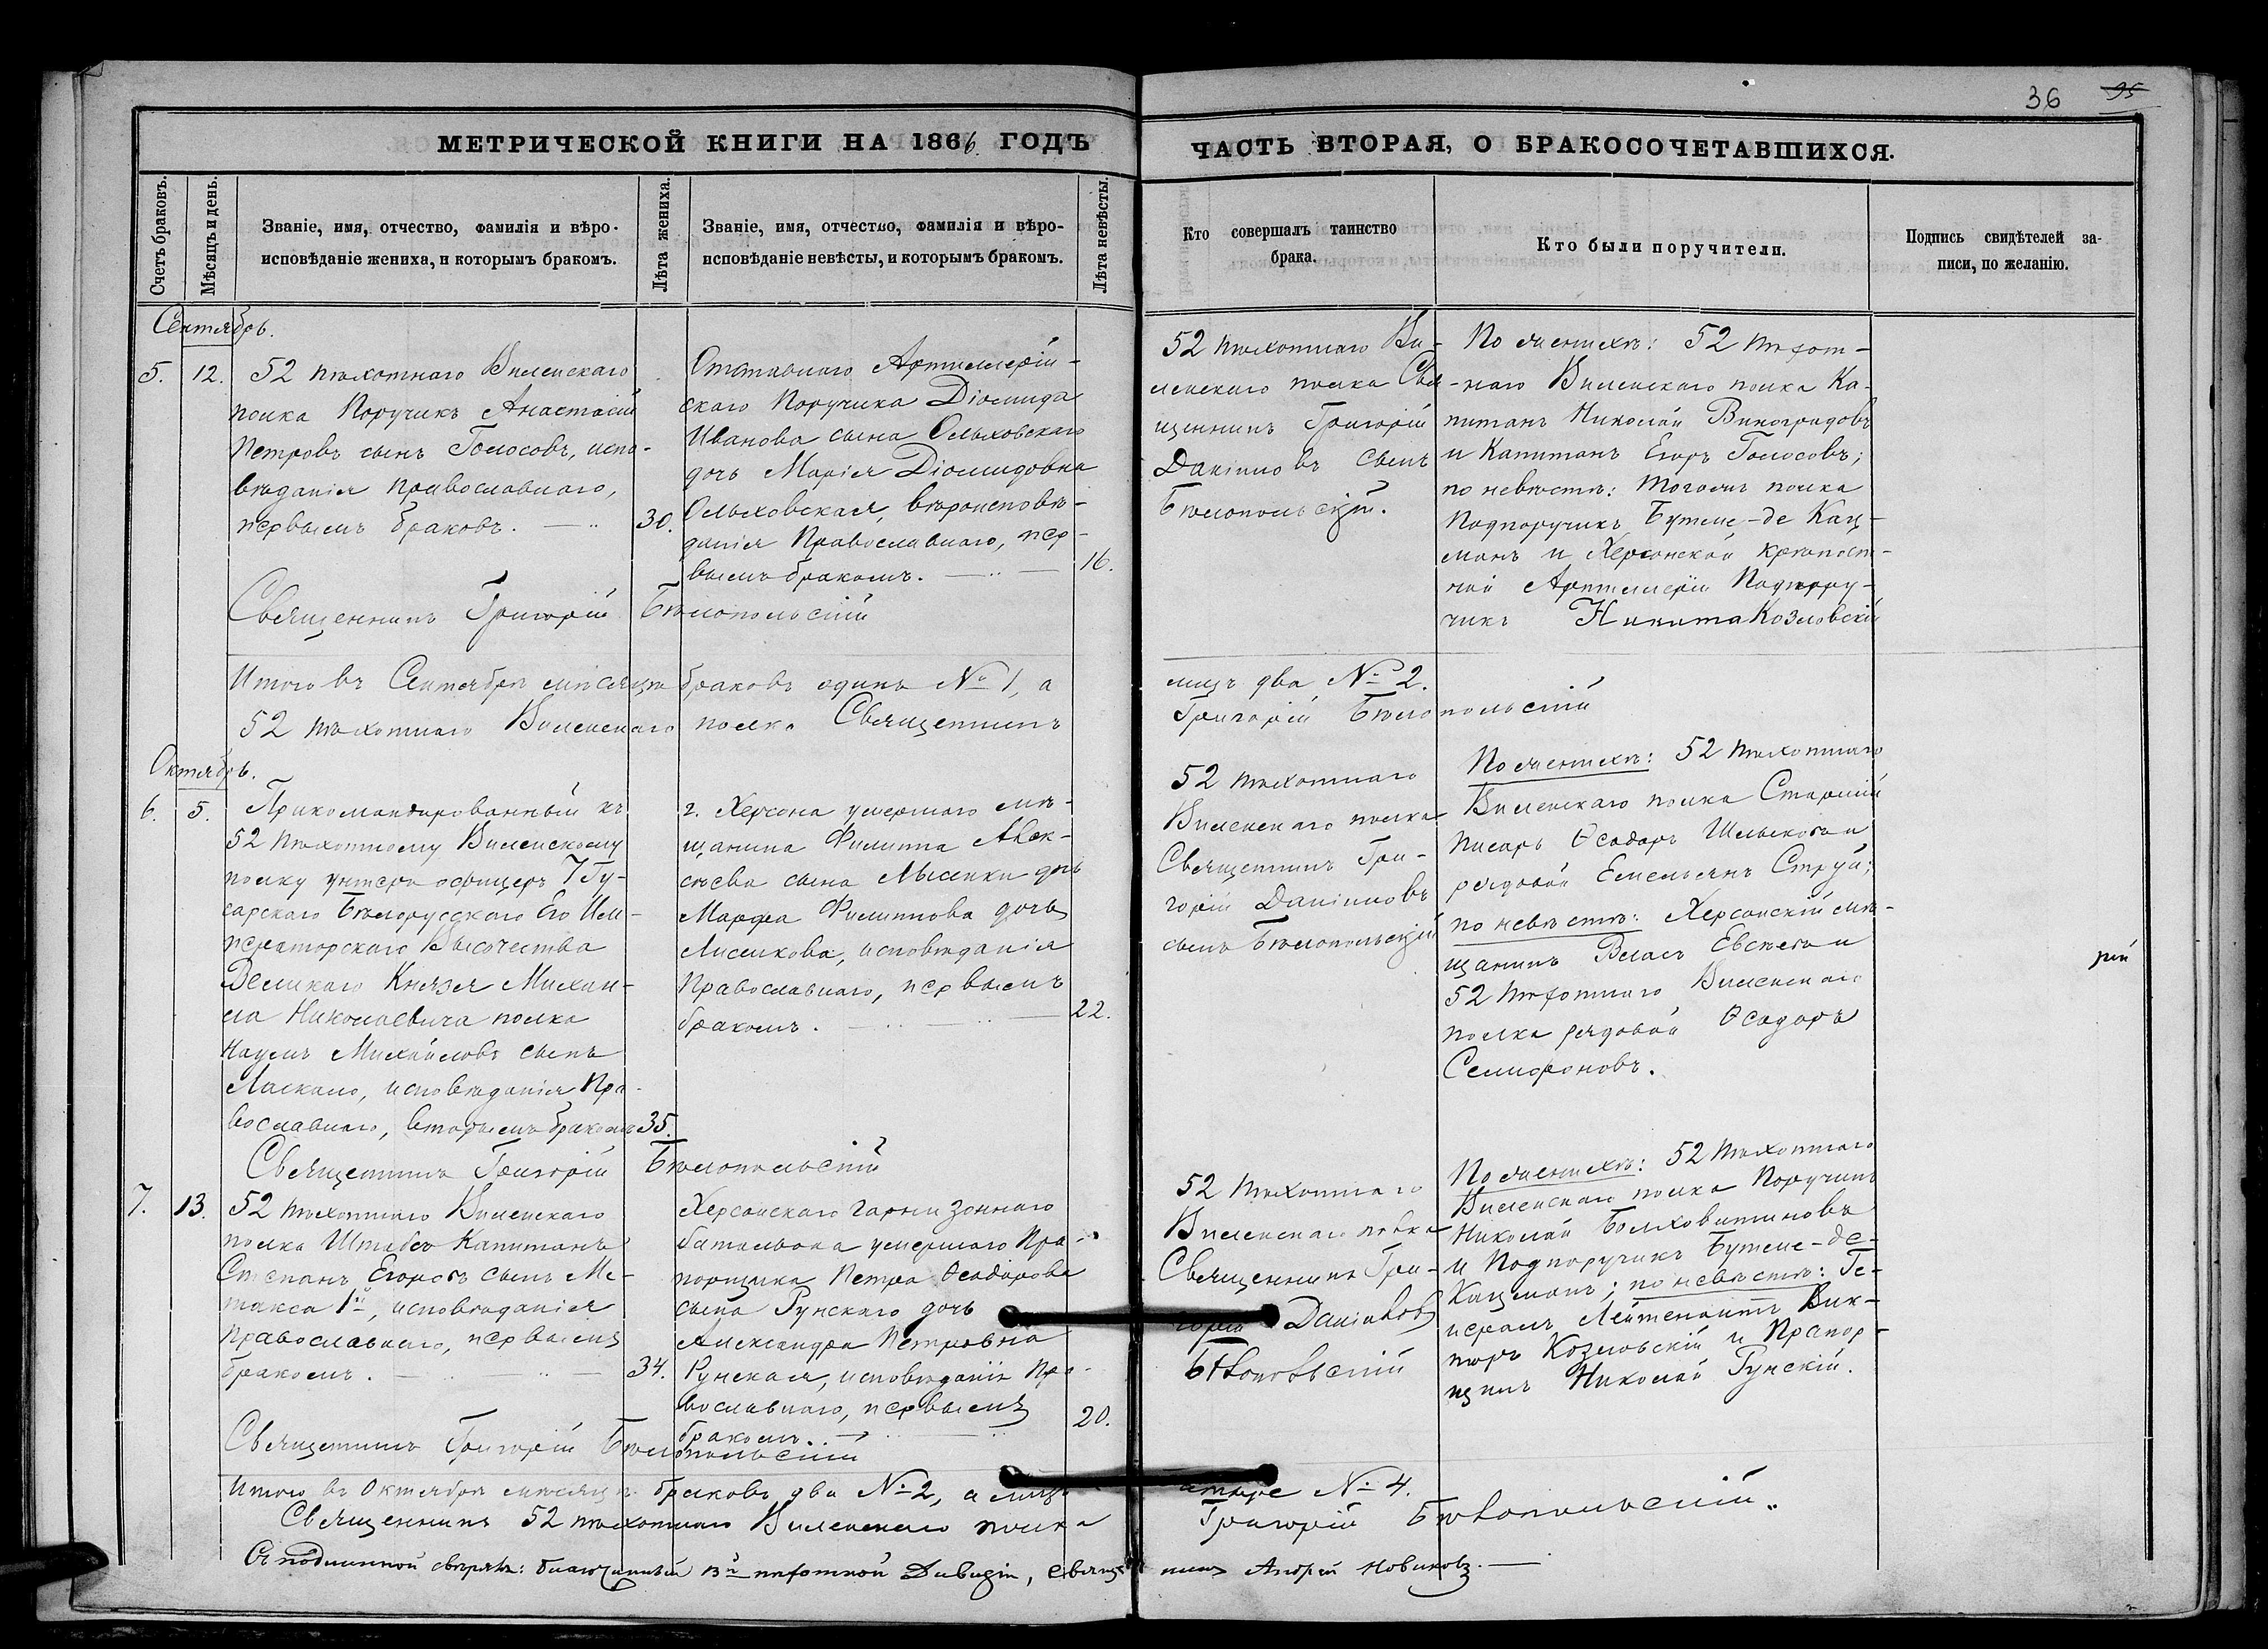 36 95
МЕТРИЧЕСКОЙ КНИГИ НА 1866 ГОДЪ
ЧАСТЬ ВТОРАЯ, О БРАКОСОЧЕТАВШИХСЯ.
Счетъ браковъ.
Мѣсяцъ и день.
Званіе, имя, отчество, фамилія и вѣро-
исповѣданіе жениха, и которымъ бракомъ.
Лѣта жениха.
Званіе, имя, отчество, фамилія и вѣро-
исповѣданіе невѣсты, и которымъ бракомъ.
Лѣта невѣсты.
Кто совершалъ таинство
брака.
Кто были поручители.
Подпись свидѣтелей за-
писи, по желанію.
Сентябрь.
5. 12.
52 пѣхотнаго Виленскаго
полка Поручикъ Анастасій
Петровъ сынъ Голосовъ, испо-
вѣданія православнаго,
первымъ бракомъ. 30.
Отставнаго Артиллерій-
скаго Поручика Діомида
Иванова сына Ольховскаго
дочь Марія Діомидовна
Ольховская, вѣроисповѣ-
данія Православнаго, пер-
вымъ бракомъ. 16.
52 пѣхотнаго Ви-
ленскаго полка Свя-
щенникъ Григорій
Даніиловъ сынъ
Бѣлопольскій.
По женихѣ: 52 пѣхот-
наго Виленскаго полка Ка-
питанъ Николай Виноградовъ
и Капитанъ Егоръ Голосовъ;
по невѣстѣ: тогожъ полка
Подпоручикъ Бутми-де Кац-
манъ и Херсонской крѣпост-
ной Артиллеріи Подпору-
чикъ Никита Козловскій
Священникъ Григорій Бѣлопольскій
Итого въ Сентябрѣ мѣсяцѣ браковъ одинъ № 1, а
лицъ два № 2.
52 пѣхотнаго Виленскаго полка Священникъ
Григорій Бѣлопольскій
Октябрь.
6. 5.
Прикомандированный къ
52 пѣхотному Виленскому
полку унтеръ офицеръ 7 Гу-
сарскаго Бѣлорусскаго Его Им-
ператорскаго Высочества
Великаго Князя Михаи-
ла Николаевича полка
Наумъ Михайловъ сынъ
Ласкало, исповѣданія Пра-
вославнаго, вторымъ бракомъ 35.
г. Херсона умершаго мѣ-
щанина Филиппа Алек-
сѣева сына Лысенки дочь
Марфа Филиппова дочь
Лисенкова, исповѣданія
Православнаго, первымъ
бракомъ. 22.
52 пѣхотнаго
Виленскаго полка
Священникъ Гри-
горій Даніиловъ
сынъ Бѣлопольскій
По женихѣ: 52 пѣхотнаго
Виленскаго полка Старшій
писарь Ѳеодоръ и
рядовой Емельянъ Струй;
по невѣстѣ: Херсонскій мѣ-
щанинъ Власъ и
52 пѣхотнаго Виленскаго
полка рядовой Ѳеодоръ
Селифоновъ.
Священникъ Григорій Бѣлопольскій
7. 13.
52 пѣхотнаго Виленскаго
полка Штабсъ Капитанъ
Степанъ Егоровъ сынъ Ме-
такса 1й, исповѣданія
Православнаго, первымъ
бракомъ. 34.
Херсонскаго гарнизоннаго
баталіона умершаго Пра-
порщика Петра Ѳеодорова
сына Рунскаго дочь
Александра Петровна
Рунская, исповѣданія Пра-
вославнаго, первымъ
бракомъ. 20.
52 пѣхотнаго
Виленскаго полка
Священникъ Гри-
горій Даніиловъ
Бѣлопольскій
По женихѣ: 52 пѣхотнаго
Виленскаго полка Поручикъ
Николай Болховитиновъ
и Подпоручикъ Бутми-де-
Кацманъ; по невѣстѣ: Ге-
нералъ Лейтенантъ Вик-
торъ Козловскій и Прапор-
щикъ Николай Рунскій.
Священникъ Григорій Бѣлопольскій
Итого въ Октябрѣ мѣсяцѣ браковъ два № 2, а лицъ
четыре № 4.
Священникъ 52 пѣхотнаго Виленскаго полка
Григорій Бѣлопольскій.
Съ подлинной свѣрялъ: благочинный 13й пѣхотной Дивизіи, священникъ Андрей Новиковъ.